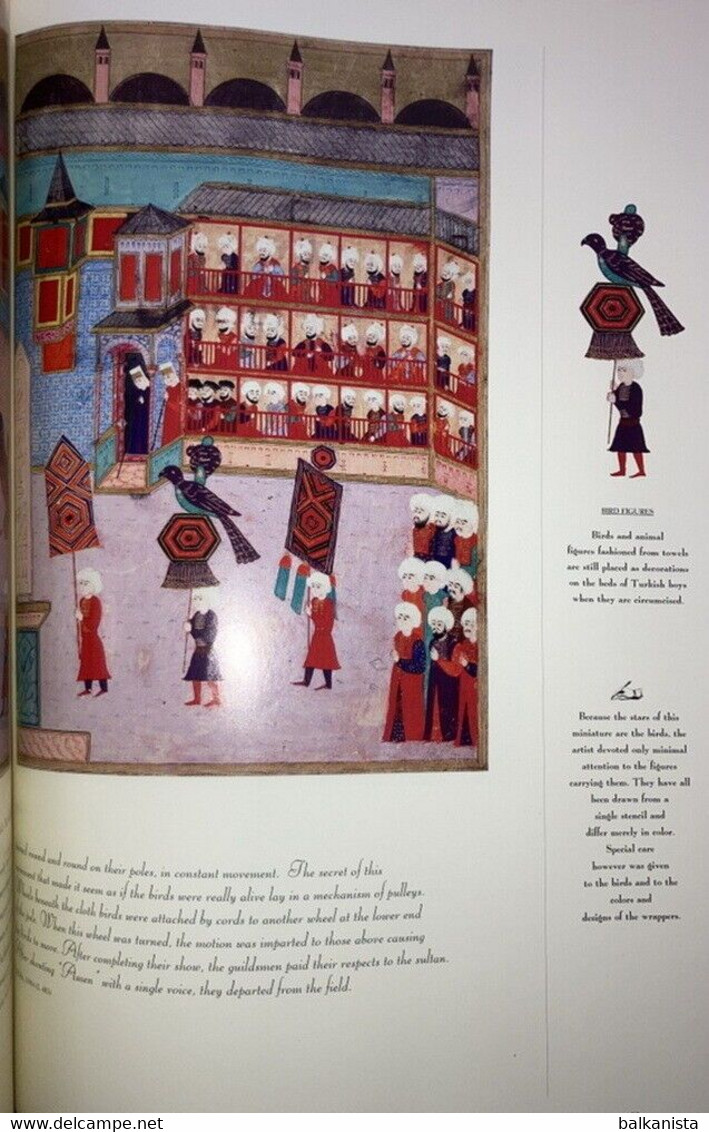 BIRD FIGURES
Birds and animal
figures fashioned from towels
are still placed as decorations
on the beds of Turkish boys
when they are circumcised.
Because the stars of this
miniature are the birds, the
artist devoted only minimal
attention to the figures
carrying them. They have all
been drawn from a
single stencil and
differ merely in color.
Special care
however was given
to the birds and to the
colors and
designs of the wrappers.
round and round on their poles, in constant movement. The secret of this
that made it seem as if the birds were really alive lay in a mechanism of pulleys.
beneath the cloth birds were attached by cords to another wheel at the lower end
pole. When this wheel was turned, the motion was imparted to those above causing
birds to move. After completing their show, the guildsmen paid their respects to the sultan.
shouting "Amen" with a single voice, they departed from the field.
delcampe.net
balkanista